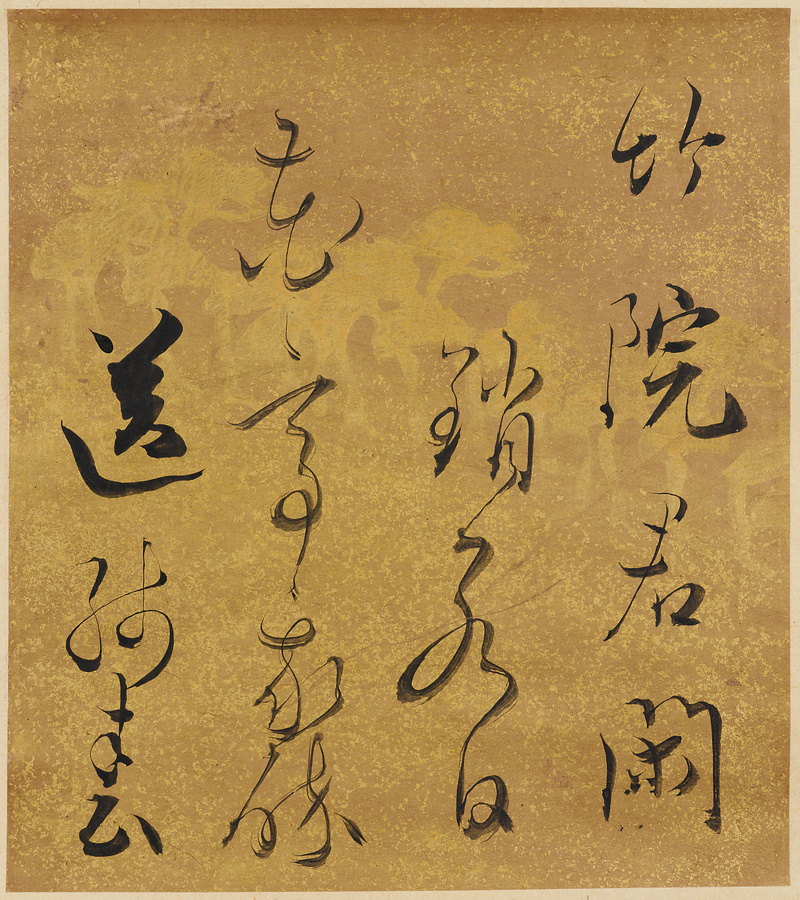 竹院君閑
銷永日
花亭我醉
送残春